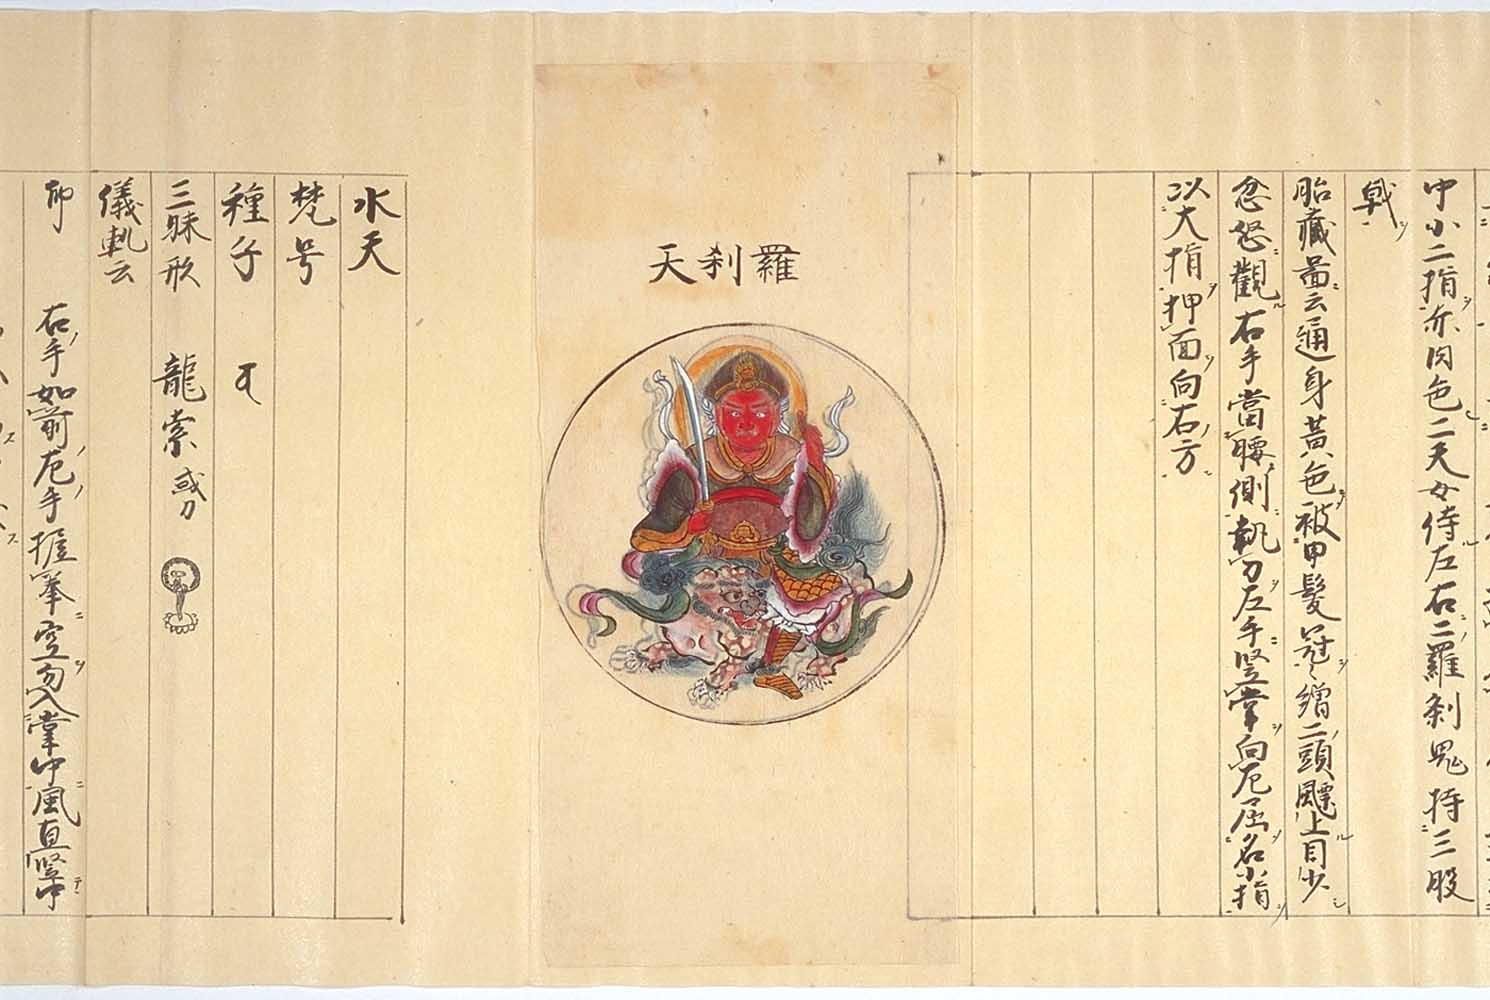 中小二指亦肉色二天女侍左右二羅刹鬼持三股
戟
胎藏啚云通身黃色被甲髮冠〻繒二頭颷上目少
忿怒觀右手當腰側執刀左手竪掌向左屈名小指
以大指押面向右方
羅刹天
水天
梵号
種子
三昧形 龍索或刀
儀軌云
右手如前左手握拳空勿入掌中風直竪中